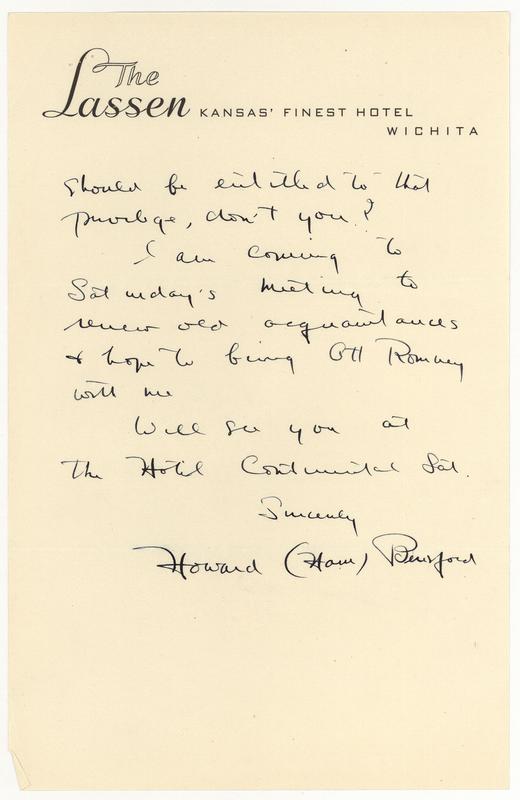 The
Lassen KANSAS' FINEST HOTEL
WICHITA
should be entitled to that
privilege, don't you?
I am coming to
Saturday's meeting to
renew old acquaintances
& hope to bring Ott Romney
with me
Will see you at
the Hotel Continental Sat.
Sincerely
Howard (Ham) Beresford